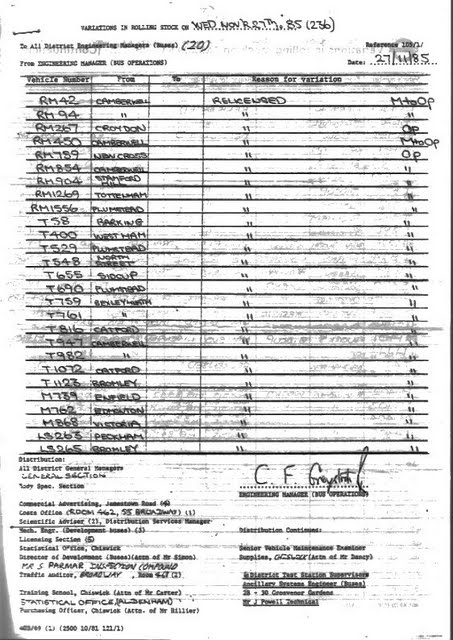 VARIATIONS IN ROLLING STOCK ON WED NOVR 27th 19 85 (236)
To All District Engineering Managers (Buses) (20) Reference 105/1/
From ENGINEERING MANAGER (BUS OPERATIONS) Date: 27/11/85
Vehicle Number From To Reason for variation
RM42 CAMBERWELL RELICENSED M to Op
RM 94 " " "
RM267 CROYDON " Op
RM450 CAMBERWELL " M to Op
RM789 NEW CROSS " Op
RM854 CAMBERWELL " "
RM904 STAMFORD HILL " "
RM1269 TOTTENHAM " "
RM1556 PLUMSTEAD " "
T58 BARKING " "
T400 WEST HAM " "
T529 PLUMSTEAD " "
T548 NORTH STREET " "
T655 SIDCUP " "
T690 PLUMSTEAD " "
T759 BEXLEYHEATH " "
T761 " " "
T816 CATFORD " "
T947 CAMBERWELL " "
T982 " " "
T1072 CATFORD " "
T1123 BROMLEY " "
M739 ENFIELD " "
M762 EDMONTON " "
M868 VICTORIA " "
LS263 PECKHAM " "
LS265 BROMLEY " "
Distribution:
All District General Managers
GENERAL SECTION
Spec. Section
ENGINEERING MANAGER (BUS OPERATIONS)
Commercial Advertising, Jamestown Road
Costs Office (ROOM 462, 55 BROADWAY) (1)
Scientific Adviser (2), Distribution Services Manager
Mech. Engr. (Development buses) (3) Distribution Continued:
Licensing Section (5)
Statistical Office, Chiswick Senior Vehicle Maintenance Examiner
Director of Development (Buses)(Attn of Mr Simon) Supplies, CHISWICK (Attn of Mr Dancy)
MR S PARMAR INSPECTION COMPOUND
Traffic Auditor, BROADWAY, Room 467 (2) District Test Station Supervisors
Ancillary Systems Engineer (Buses)
Training School, Chiswick (Attn of Mr Carter) 28 - 30 Grosvenor Gardens
STATISTICAL OFFICE (ALDENHAM) Mr J Powell Technical
Purchasing Officer, Chiswick (Attn. of Mr Hillier)
(1) (2500 10/81 121/1)